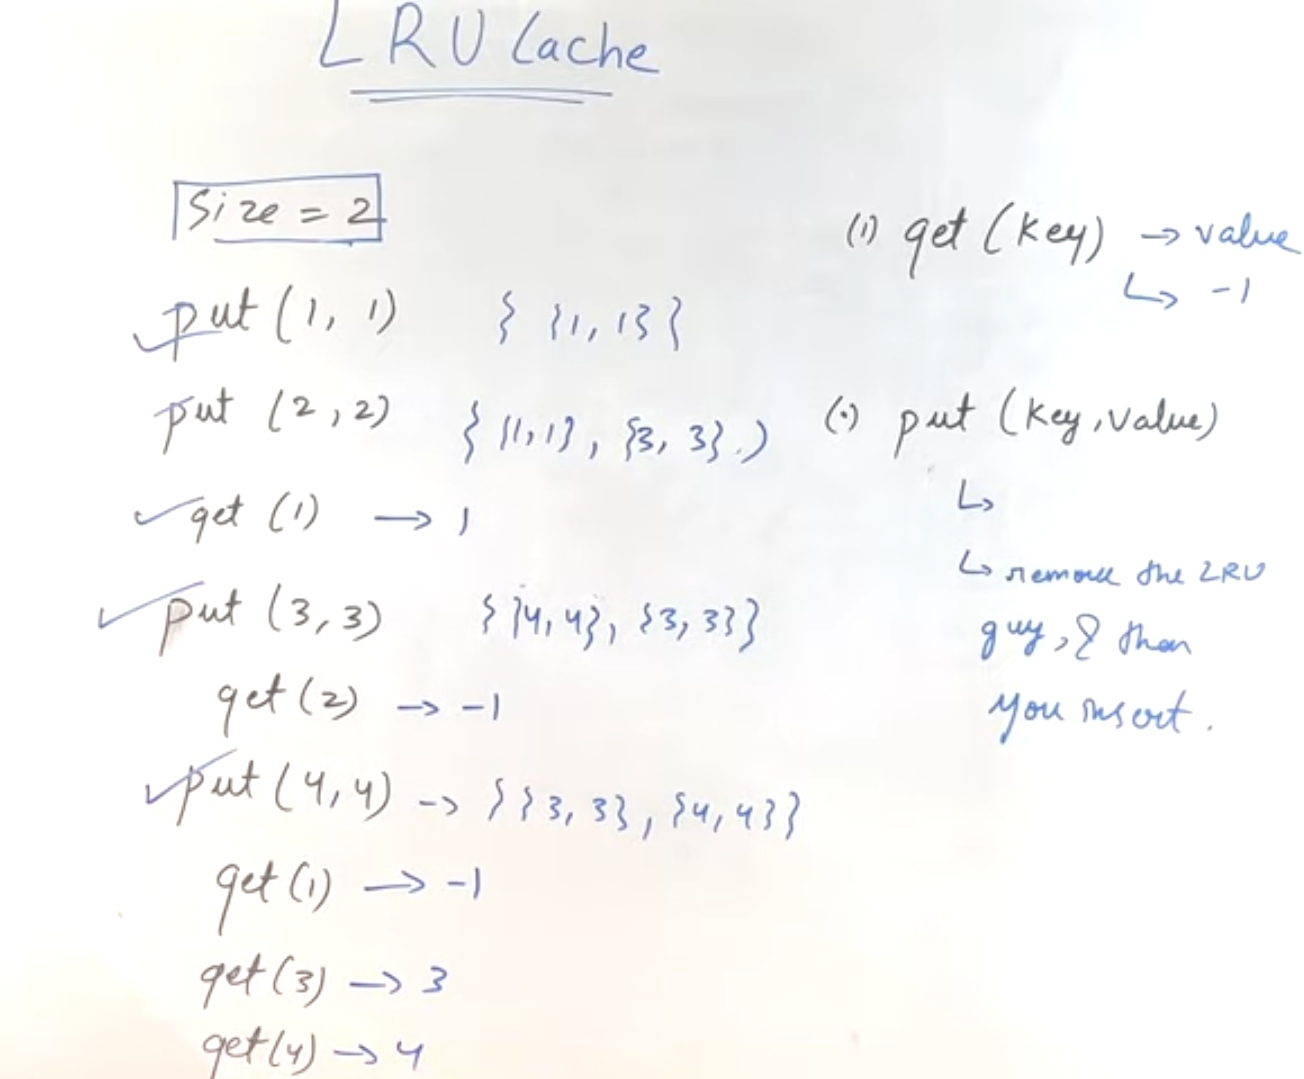 LRU Cache
Size = 2
put (1, 1) { {1, 1} {
put (2, 2) { {1, 1}, {3, 3}.)
get (1) → 1
put (3, 3) { {4, 4}, {3, 3}}
get (2) → -1
put (4, 4) -> { {3, 3}, {4, 4}}
get (1) → -1
get (3) → 3
get (4) → 4
(1) get (key) → value
↳ -1
(•) put (key, value)
↳
↳ remove the LRU
guy, & then
you insert.